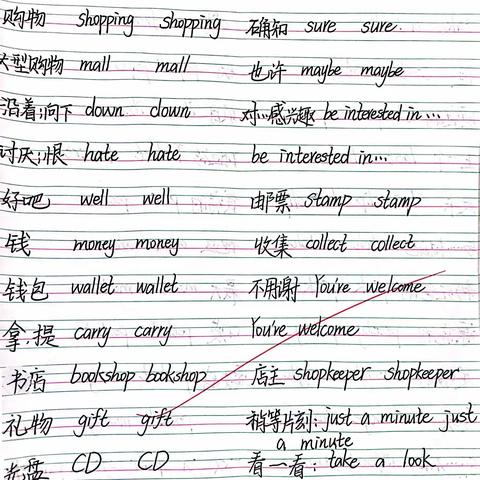 购物 shopping shopping
大型购物 mall mall
沿着;向下 down down
讨厌;恨 hate hate
好吧 well well
钱 money money
钱包 wallet wallet
拿,提 carry carry
书店 bookshop bookshop
礼物 gift gift
光盘 CD CD
确知 sure sure
也许 maybe maybe
对…感兴趣 be interested in…
be interested in…
邮票 stamp stamp
收集 collect collect
不用谢 You're welcome
You're welcome
店主 shopkeeper shopkeeper
稍等片刻: just a minute just
a minute
看一看: take a look